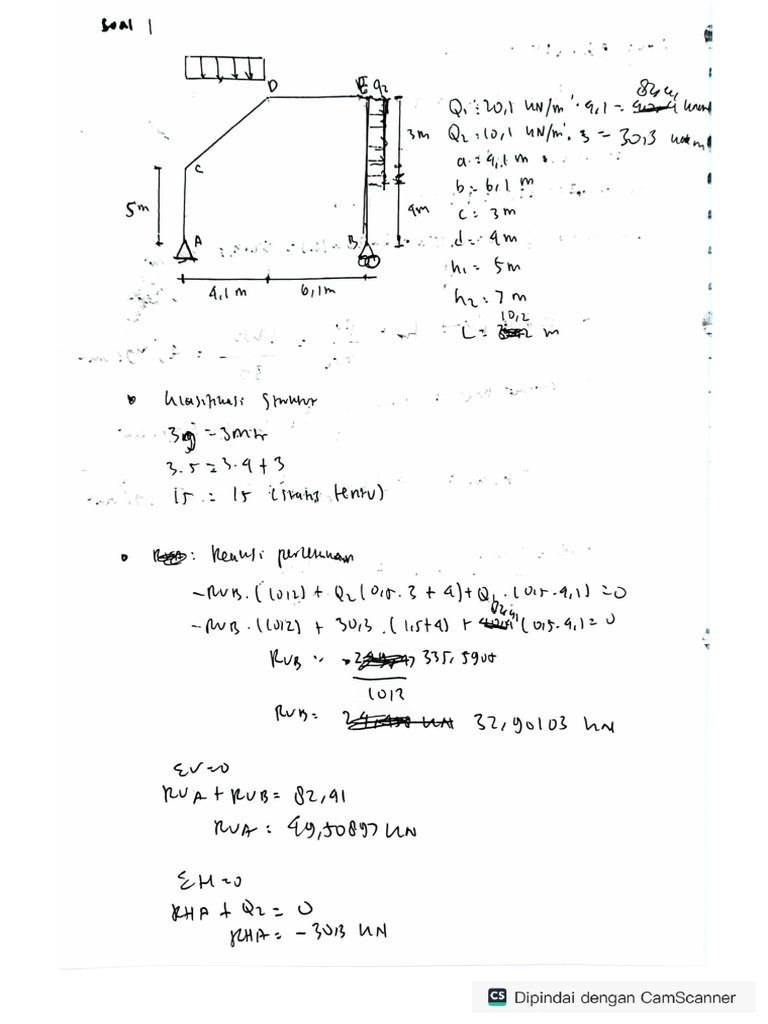 Soal 1
D
E q2
C
A
B
5m
3m
4m
4,1 m
6,1m
Q1 : 20,1 kN/m' . 4,1 = 82,41 kN
Q2 : 10,1 kN/m' . 3 = 30,3 kN
a = 4,1 m
b = 6,1 m
c = 3m
d = 4m
h1 = 5m
h2 = 7m
L = 10,2 m
• Klasifikasi Struktur
3j = 3m+r
3.5 = 3.4 + 3
15 = 15 (statis tentu)
• : Reaksi perletakan
-RVB . (10,2) + Q2 (0,5 . 3 + 4) + Q1 . (0,5 . 4,1) = 0
-RVB . (10,2) + 30,3 . (1,5+4) + 82,41 (0,5 . 4,1 = 0
RVB = 335,5905
10,2
RVB = 32,90103 kN
ΣV=0
RVA + RVB = 82,41
RVA = 49,50897 kN
ΣH=0
RHA + Q2 = 0
RHA = -30,3 kN
CS Dipindai dengan CamScanner